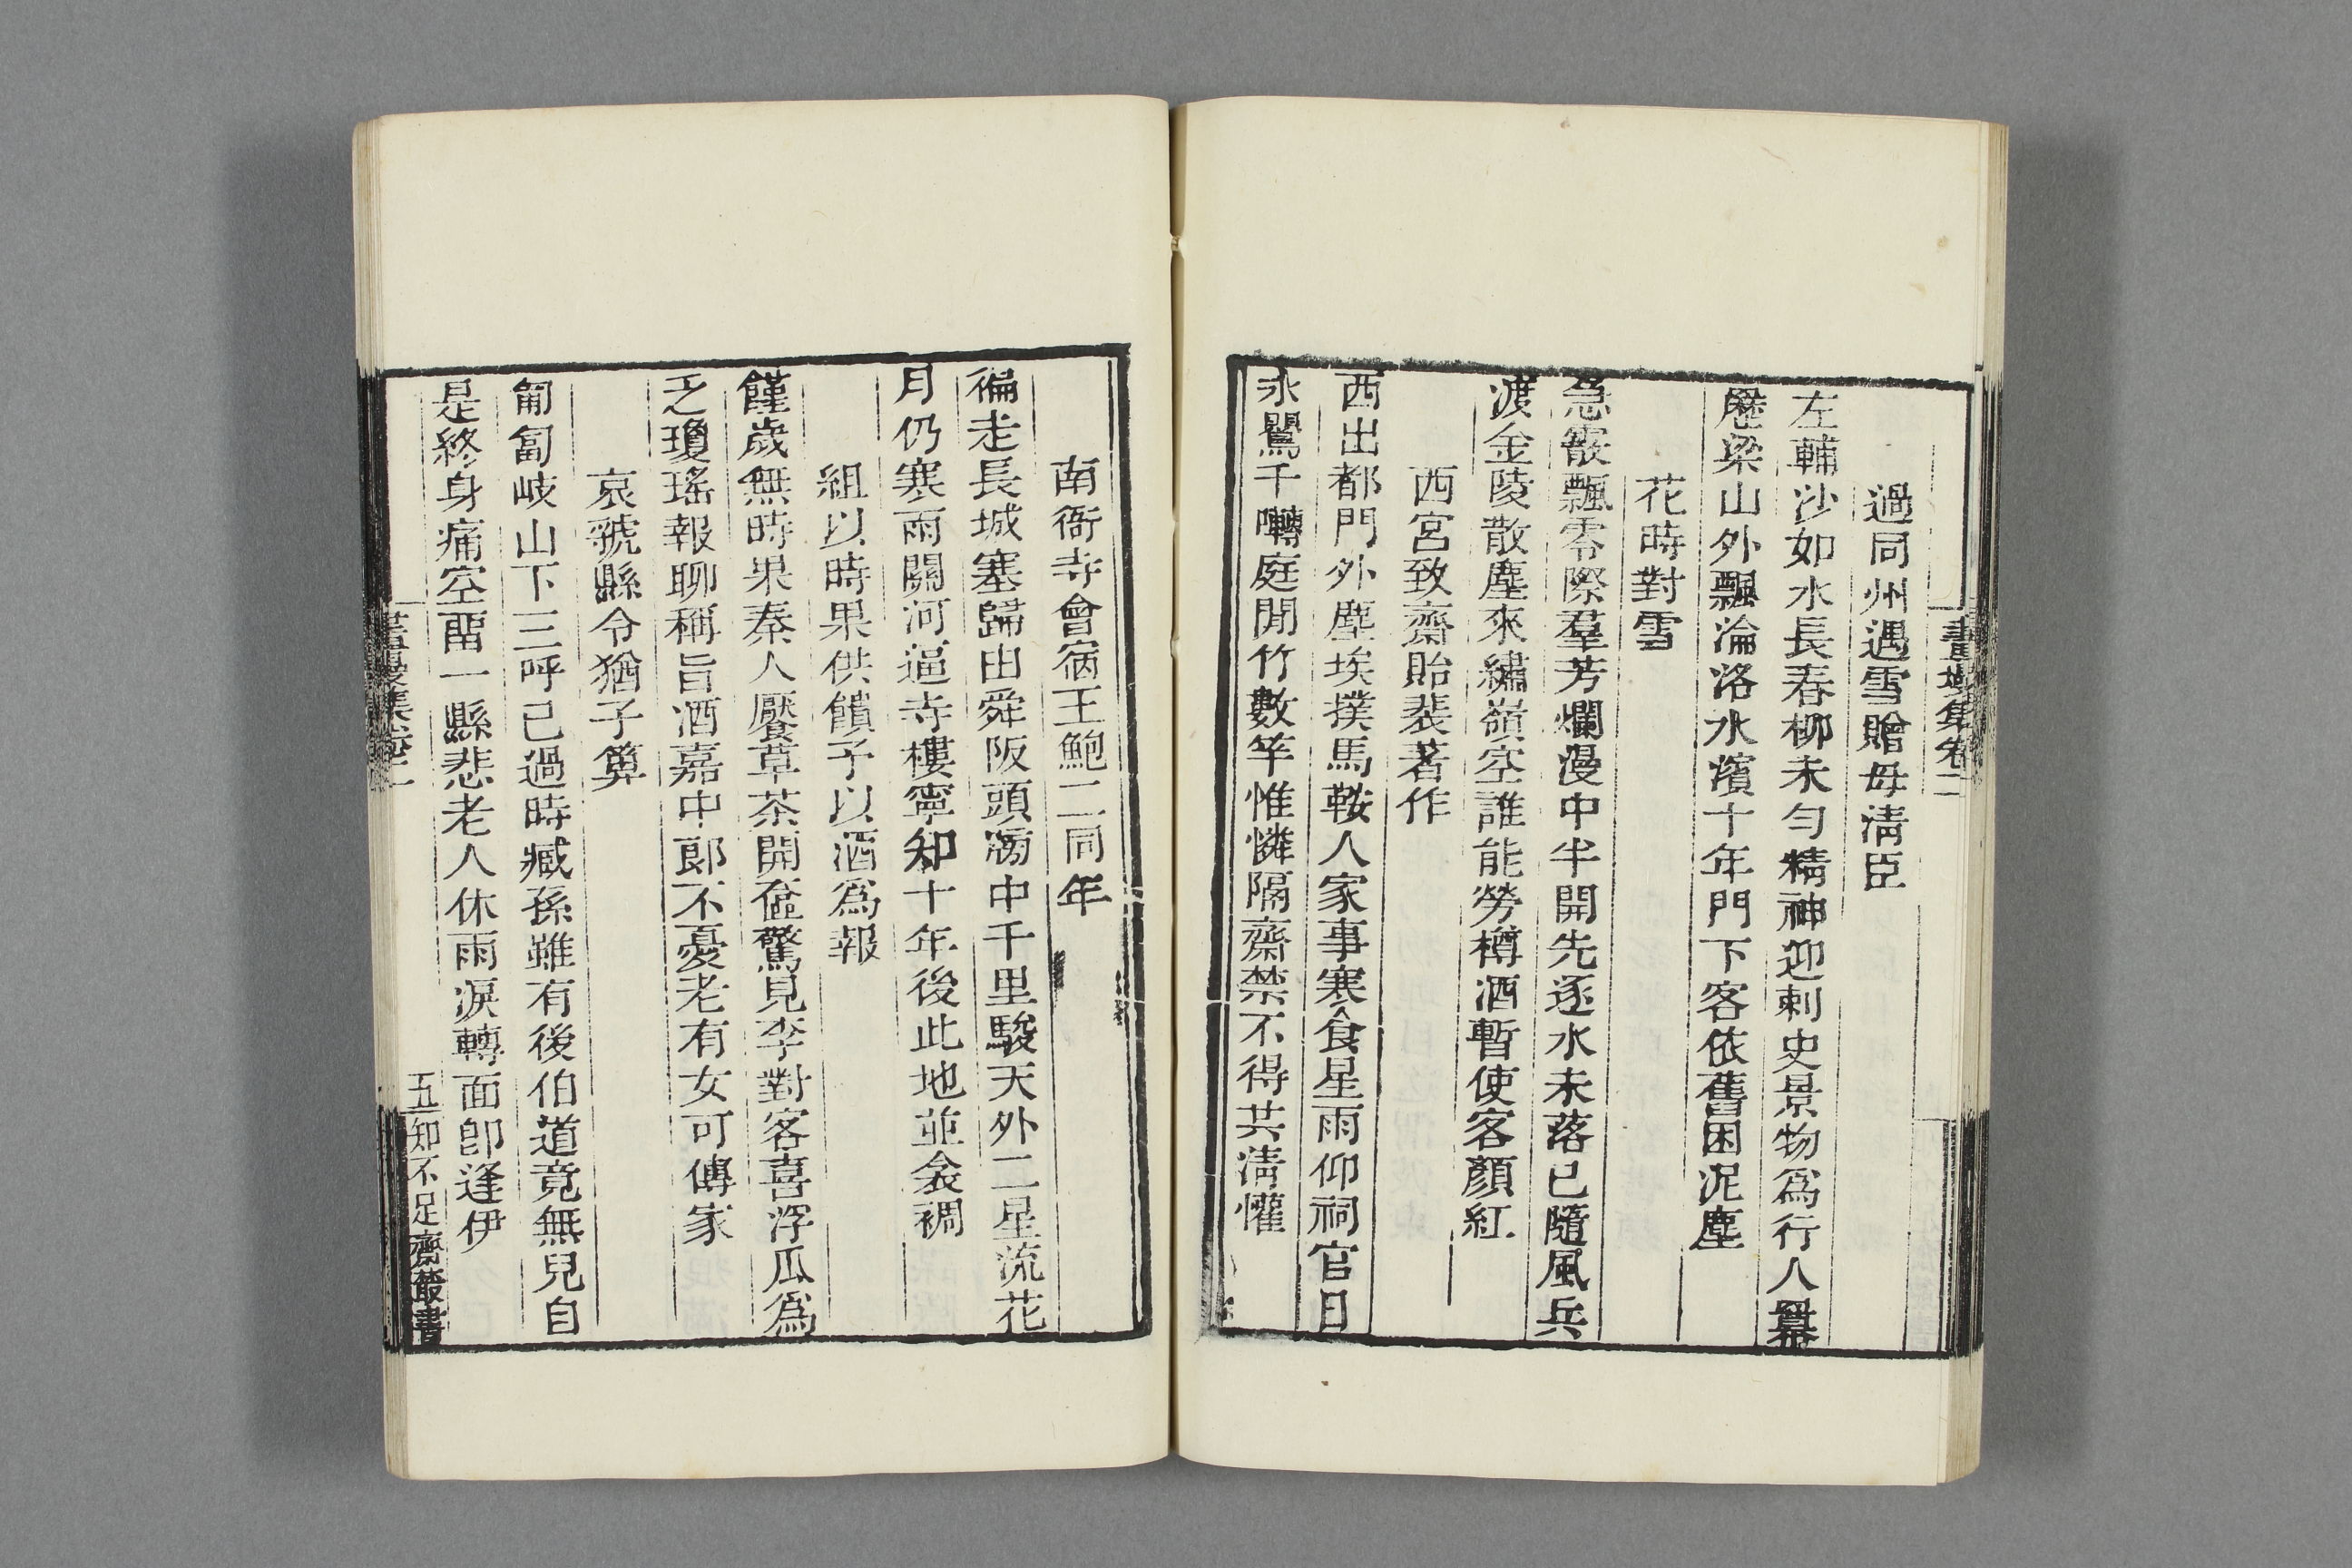 畫墁集卷二
過同州遇雪贈毋淸臣
左輔沙如水長春柳未勻精神迎剌史景物爲行人冪
歷梁山外飄淪洛水濱十年門下客依舊困泥塵
花時對雪
急霰飄零際羣芳爛漫中半開先逐水未落已隨風兵
渡金陵散塵來繡嶺空誰能勞樽酒暫使客顏紅
西宮致齋貽裴著作
西出都門外塵埃撲馬鞍人家事寒食星雨仰祠官日
永鸎千囀庭閒竹數竿惟憐隔齋禁不得共淸懽
南衙寺會宿王鮑二同年
徧走長城塞歸由舜阪頭中千里駿天外二星流花
月仍寒雨關河逼寺樓寧知十年後此地並衾裯
組以時果供饋予以酒爲報
饉歲無時果秦人饜草茶開奩驚見李對客喜浮瓜爲
乏瓊瑤報聊稱旨酒嘉中郞不憂老有女可傳家
哀虢縣令猶子算
匍匐岐山下三呼已過時臧孫雖有後伯道竟無兒自
是終身痛空畱一縣悲老人休雨淚轉面卽逢伊
畫墁集卷二
五
知不足齋叢書